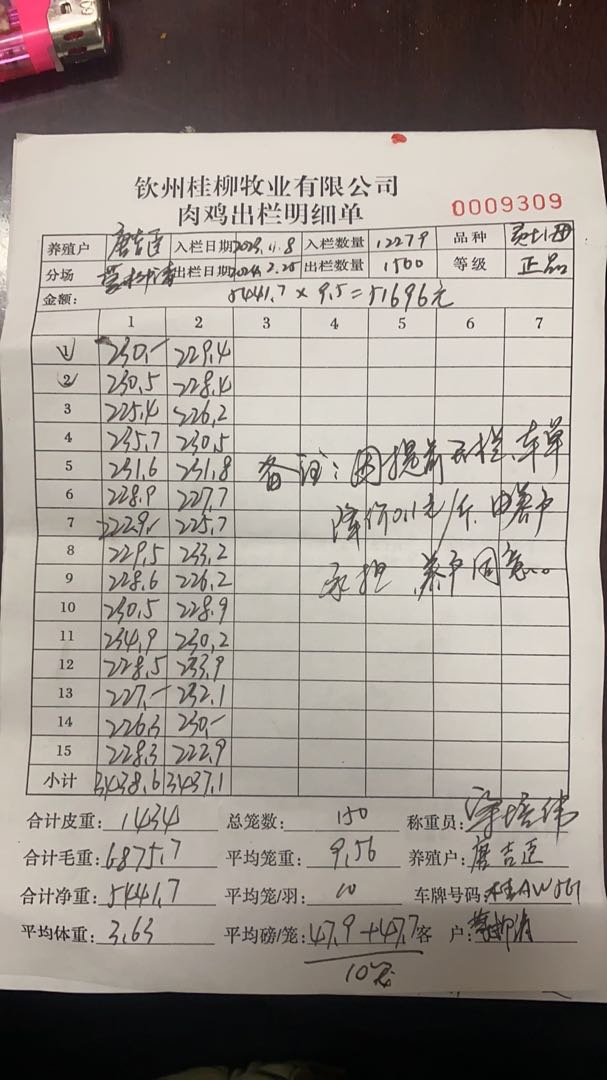 钦州桂柳牧业有限公司
肉鸡出栏明细单
0009309
养殖户 唐吉臣 入栏日期 2023.11.8 入栏数量 12279 品种
分场 出栏日期 2024.2.25 出栏数量 1500 等级 正品
金额: 5441.7 × 9.5 = 51696元
1 2 3 4 5 6 7
1 230.- 229.4
2 230.5 228.4
3 225.4 226.2
4 235.7 230.5
5 231.6 231.8
6 228.9 227.7
7 222.9 225.7
8 229.5 233.2
9 228.6 226.2
10 230.5 228.9
11 234.9 230.2
12 228.5 233.9
13 227.- 232.1
14 226.3 230.-
15 228.3 222.9
小计 3438.6 3437.1
备注:因提前出栏,车单
降价0.1元/斤.由养户
承担 养户同意..
合计皮重: 1434 总笼数: 150 称重员:
合计毛重: 6875.7 平均笼重: 9.56 养殖户: 唐吉臣
合计净重: 5441.7 平均笼/羽: 10 车牌号码:
平均体重: 3.63 平均磅/笼: 47.9+47.7 客 户:
10笼